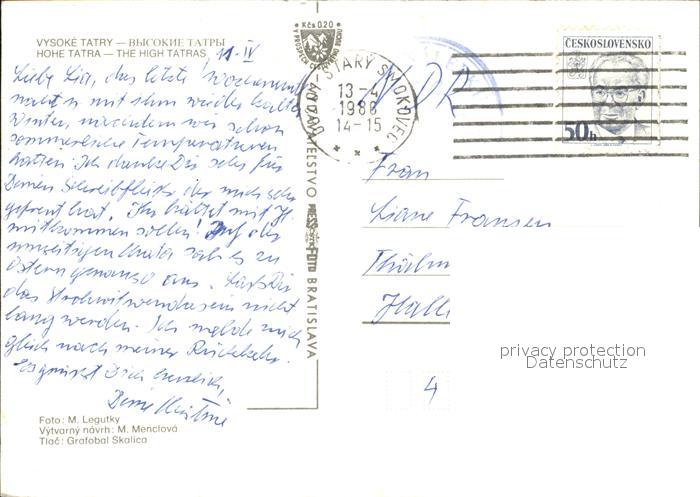 VYSOKÉ TATRY — ВЫСОКИЕ ТАТРЫ
HOHE TATRA — THE HIGH TATRAS
11-IV
Liebe Lia, das letzte Wochenende
Winter, nachdem wir schon
sommerliche Temperaturen
hatten. Ich danke Dir sehr für
Deinen Schreibfleiß, der mich sehr
gefreut hat. Ihr hättet mit H.
mitkommen sollen! Auf der
sah es zu
Ostern genauso aus. Laß Dir
das Strohwitwendasein nicht
lang werden. Ich melde mich
gleich nach meiner Rückkehr.
Es grüßt Dich herzlich,
Deine Christine
Foto: M. Legutky
Výtvarný návrh: M. Menclová
Tlač: Grafobal Skalica
Kčs 0,20
VYDAVATEĽSTVO PRESSFOTO BRATISLAVA
STARÝ SMOKOVEC
13-4
1988
14-15
DDR
ČESKOSLOVENSKO
50h
Frau
Liane Fransen
Thälm
Halle
4
privacy protection
Datenschutz